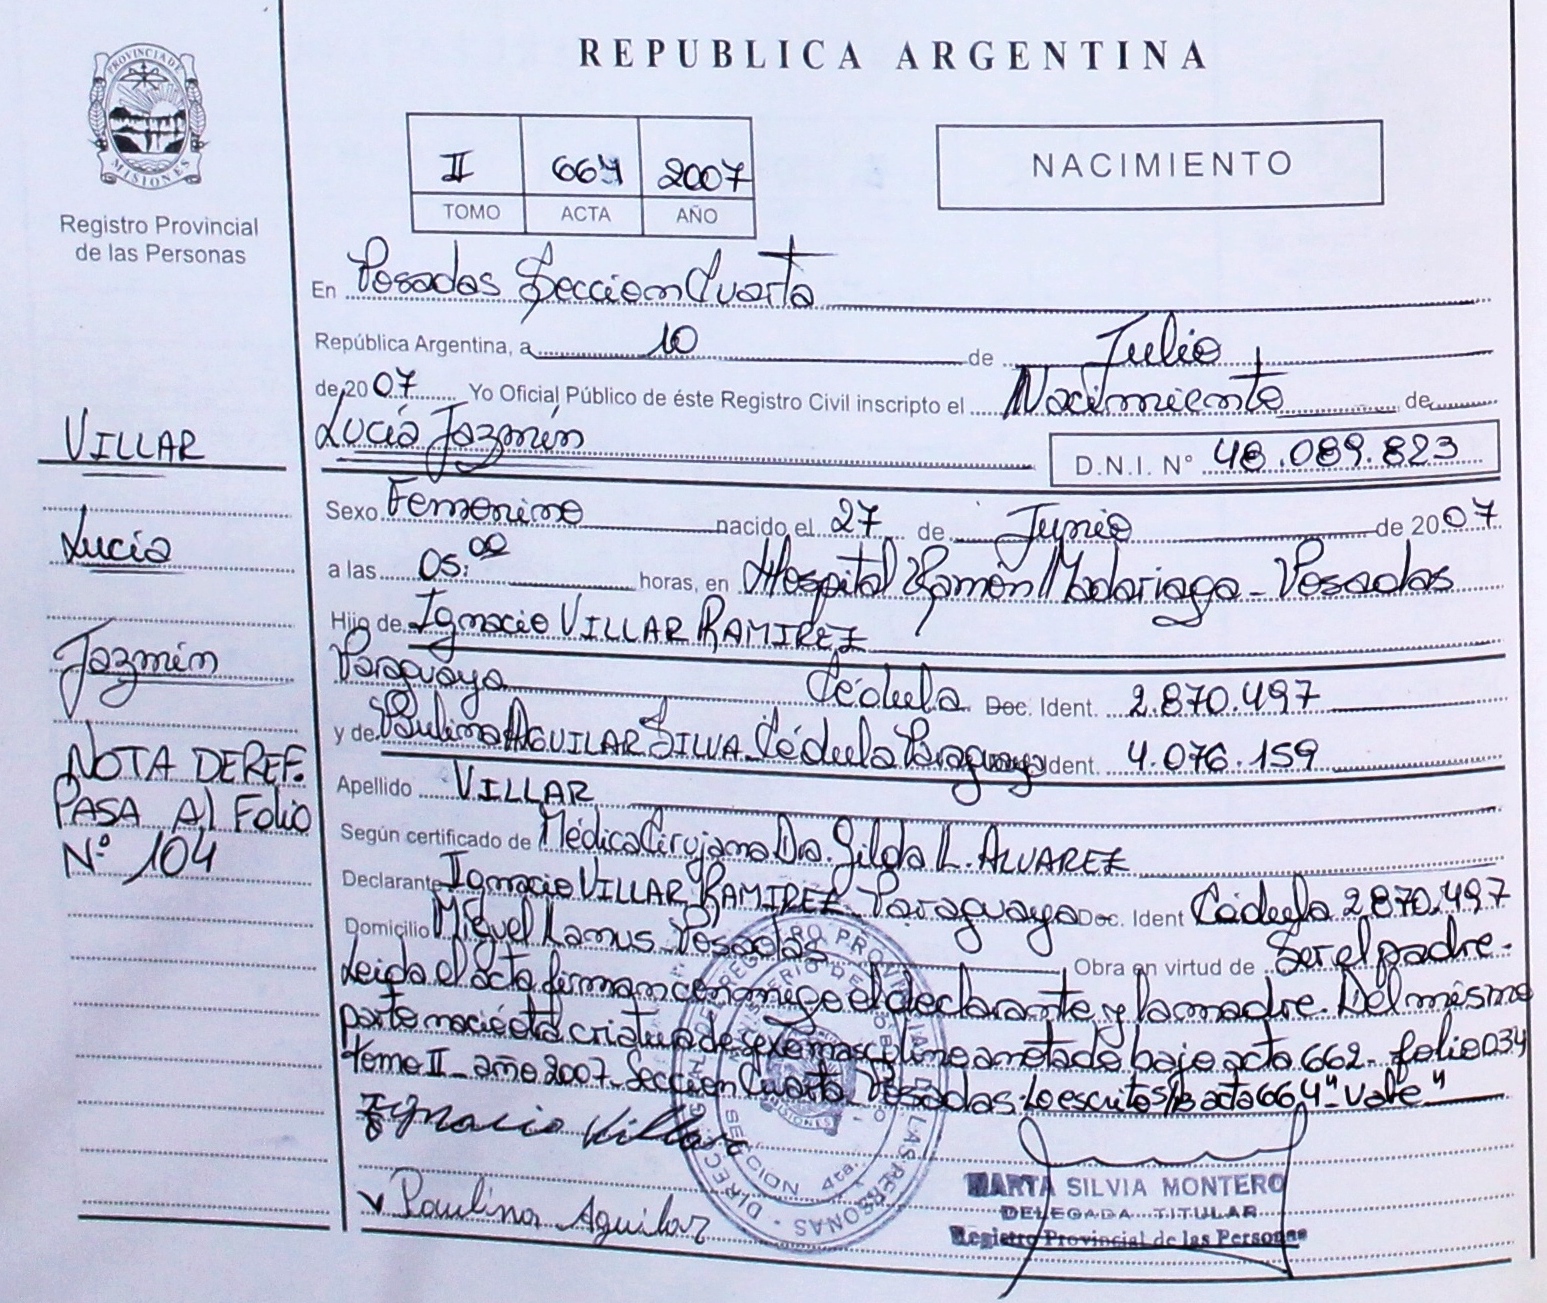 PROVINCIA DE
MISIONES
Registro Provincial
de las Personas
REPUBLICA ARGENTINA
II 664 2007
TOMO ACTA AÑO
NACIMIENTO
En Posadas Seccion Cuarta
República Argentina, a 10 de Julio
de 2007 Yo Oficial Público de éste Registro Civil inscripto el Nacimiento de
Lucía Jazmín D.N.I. N° 48.089.823
VILLAR
Lucía
Jazmín
NOTA DE REF.
PASA Al Folio
Nº 104
Sexo Femenino nacido el 27 de Junio de 2007
a las 05:00 horas, en Hospital Ramón Madariaga - Posadas
Hijo de Ignacio VILLAR RAMIREZ
Paraguaya Cédula Doc. Ident. 2.870.497
y de Paulina AGUILAR SILVA Cédula Paraguaya Ident. 4.076.159
Apellido VILLAR
Según certificado de Médica Cirujana Dra. Gilda L. ALVAREZ
Declarante Ignacio VILLAR RAMIREZ Paraguaya Doc. Ident Cédula 2870.497
Domicilio Miguel Lanus Posadas Obra en virtud de Ser el padre.
Leida el acta firman conmigo el declarante y la madre. Del mismo
parto nació otra criatura de sexo masculino anotado bajo acta 662 - folio 034
tomo II - año 2007 - Seccion Cuarta Posadas. Lo escrito s/b acta 664 "Vale"
Ignacio Villar
Paulina Aguilar
SECCION 4ta.
MARTA SILVIA MONTERO
DELEGADA TITULAR
Registro Provincial de las Personas